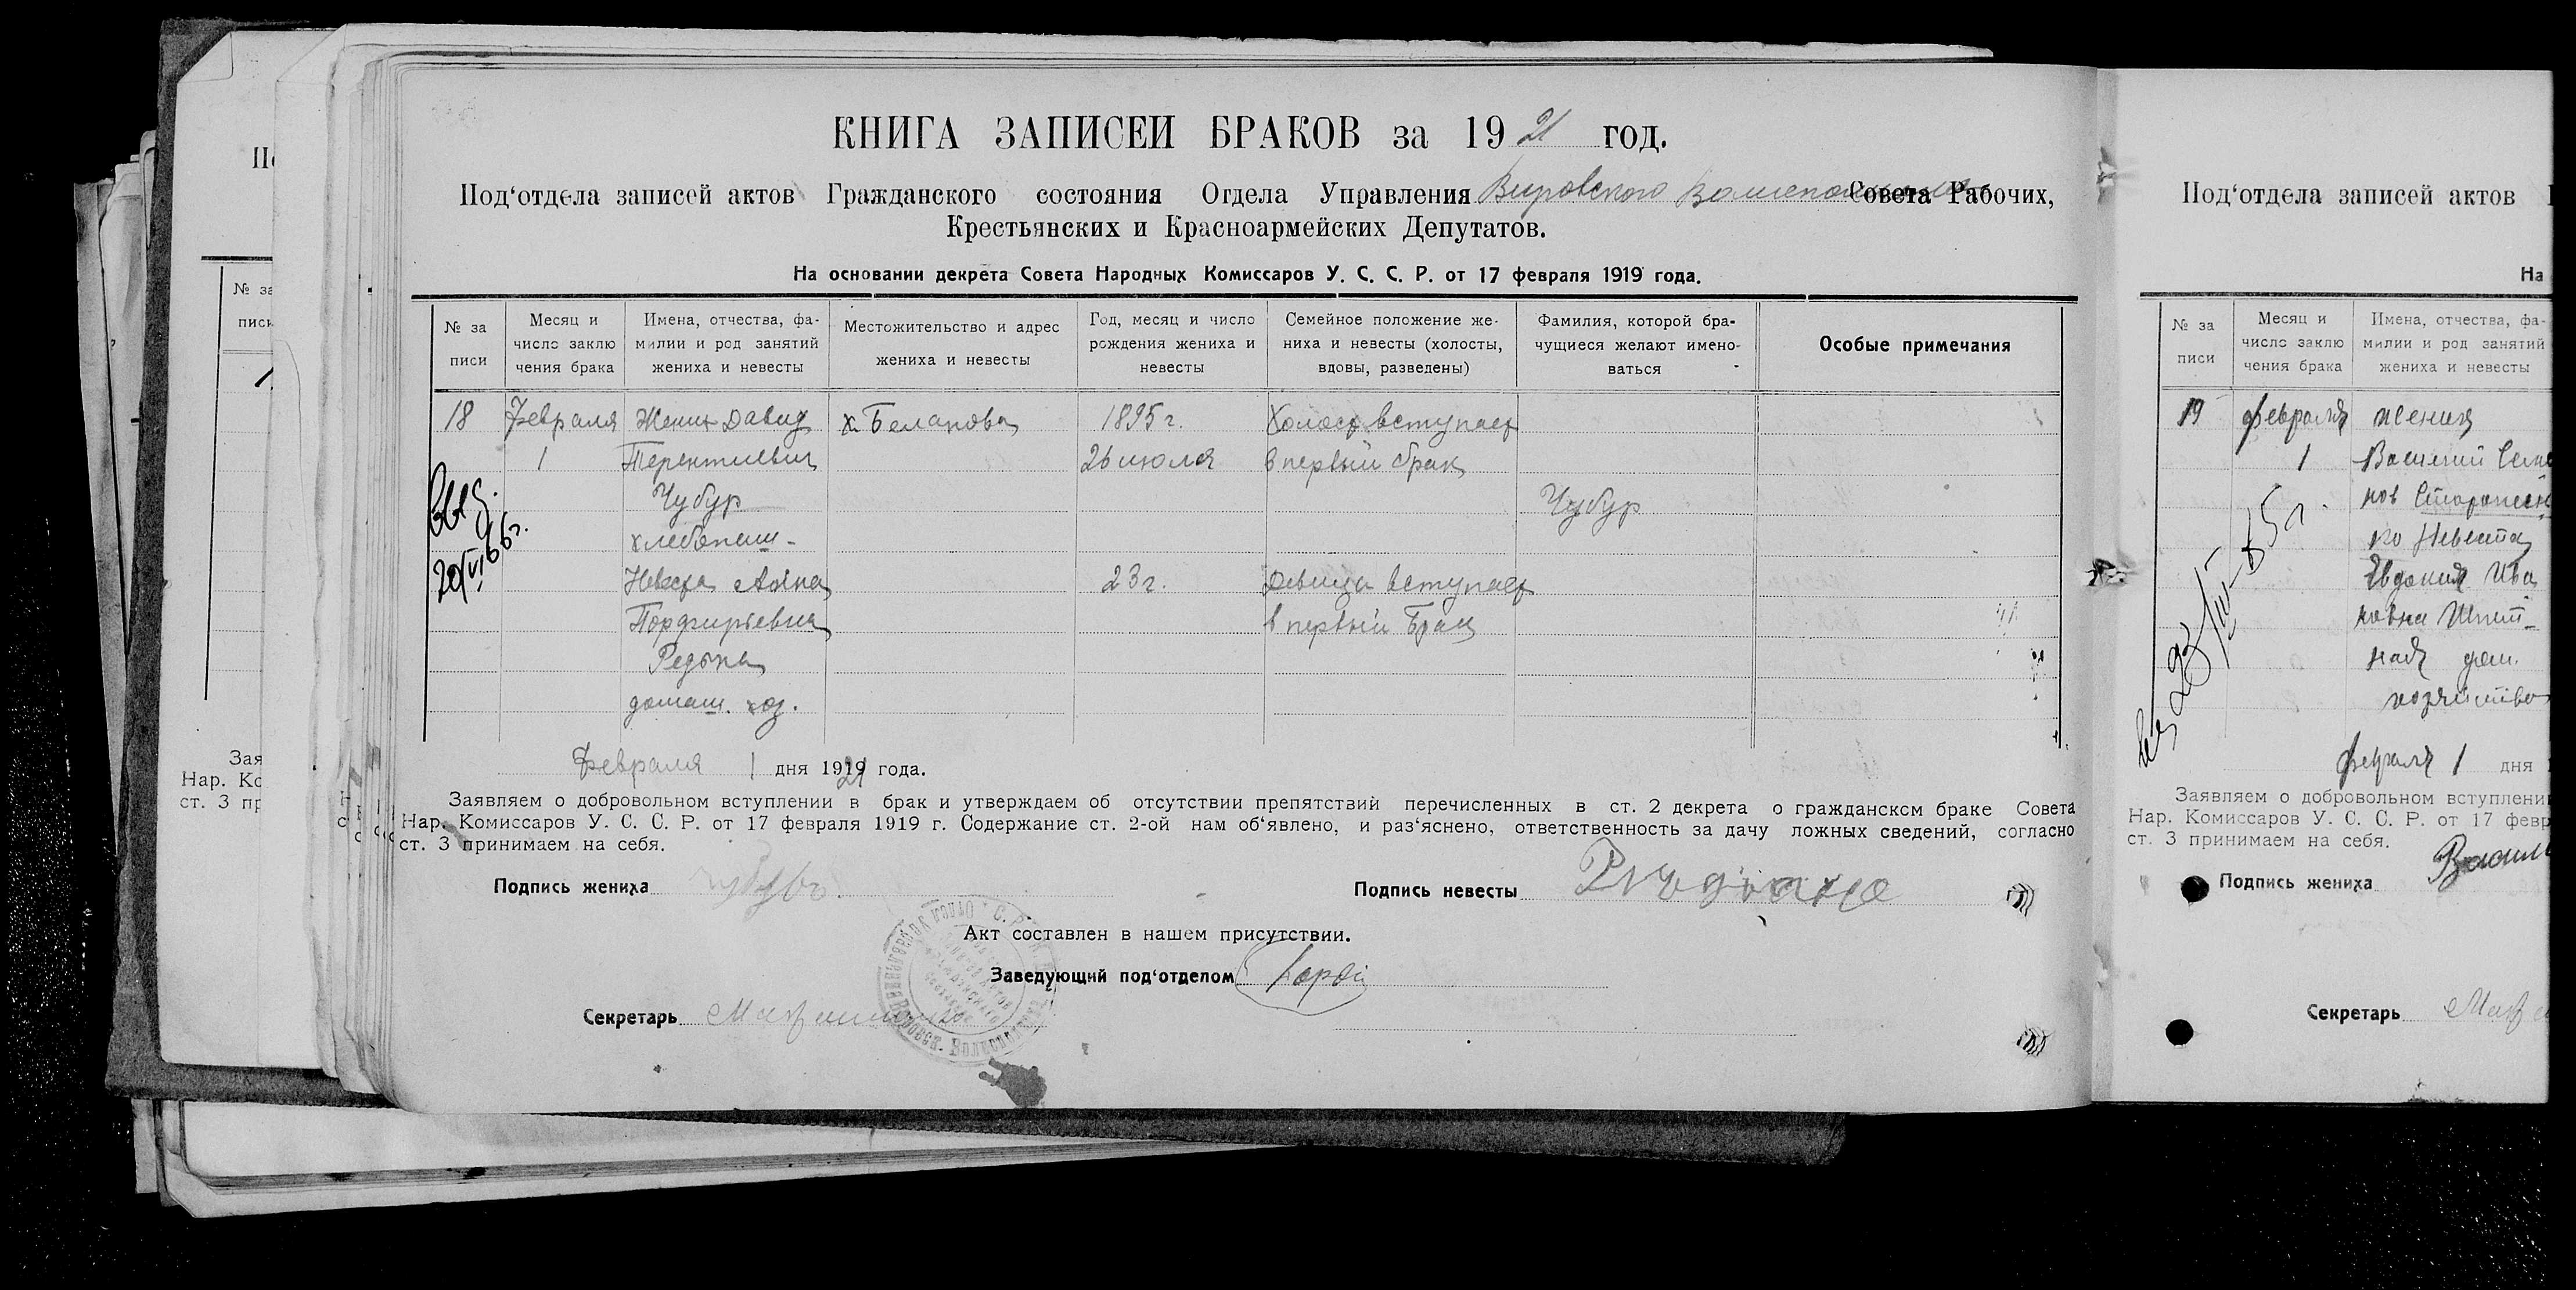 КНИГА ЗАПИСЕЙ БРАКОВ за 1921 год.
Под‘отдела записей актов Гражданского состояния Отдела Управления Вировского Совета Рабочих,
Крестьянских и Красноармейских Депутатов.
На основании декрета Совета Народных Комиссаров У. С. С. Р. от 17 февраля 1919 года.
№ за
писи
Месяц и
число заклю
чения брака
Имена, отчества, фа-
милии и род занятий
жениха и невесты
Местожительство и адрес
жениха и невесты
Год, месяц и число
рождения жениха и
невесты
Семейное положение же-
ниха и невесты (холосты,
вдовы, разведены)
Фамилия, которой бра-
чущиеся желают имено-
ваться
Особые примечания
18 Февраля Жених Давид х. Беланова 1895 г. Холост вступает
1 Терентиевич 26 июля в первый брак
Чубур Чубур
хлебопаш-
Невеста Анна 23 г. Девица вступает
Порфирьевна в первый Брак
Редька
домаш. хоз.
Выд.
20/VI 66 г.
Февраля 1 дня 1921 года.
Заявляем о добровольном вступлении в брак и утверждаем об отсутствии препятствий перечисленных в ст. 2 декрета о гражданском браке Совета
Нар. Комиссаров У. С. С. Р. от 17 февраля 1919 г. Содержание ст. 2-ой нам об‘явлено, и раз‘яснено, ответственность за дачу ложных сведений, согласно
ст. 3 принимаем на себя.
Подпись жениха
Подпись невесты
Акт составлен в нашем присутствии.
Заведующий под‘отделом
Секретарь
Под‘отдела записей актов
На
№ за
писи
Месяц и
число заклю
чения брака
Имена, отчества, фа-
милии и род занятий
жениха и невесты
19 февраля жених
1 Василий Семе
нов
Невеста
Евдокия Ива
новна
дом.
хозяйство
февраля 1 дня
Заявляем о добровольном вступлени
Нар. Комиссаров У. С. С. Р. от 17 февр
ст. 3 принимаем на себя.
Подпись жениха
Секретарь
№ за
писи
Зая
Нар. Ко
ст. 3 пр